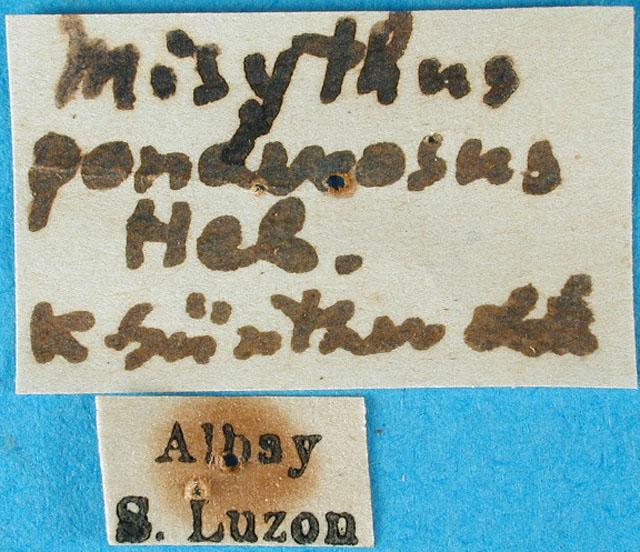 Misythus
Heb.
K Günther det
Albay
S. Luzon